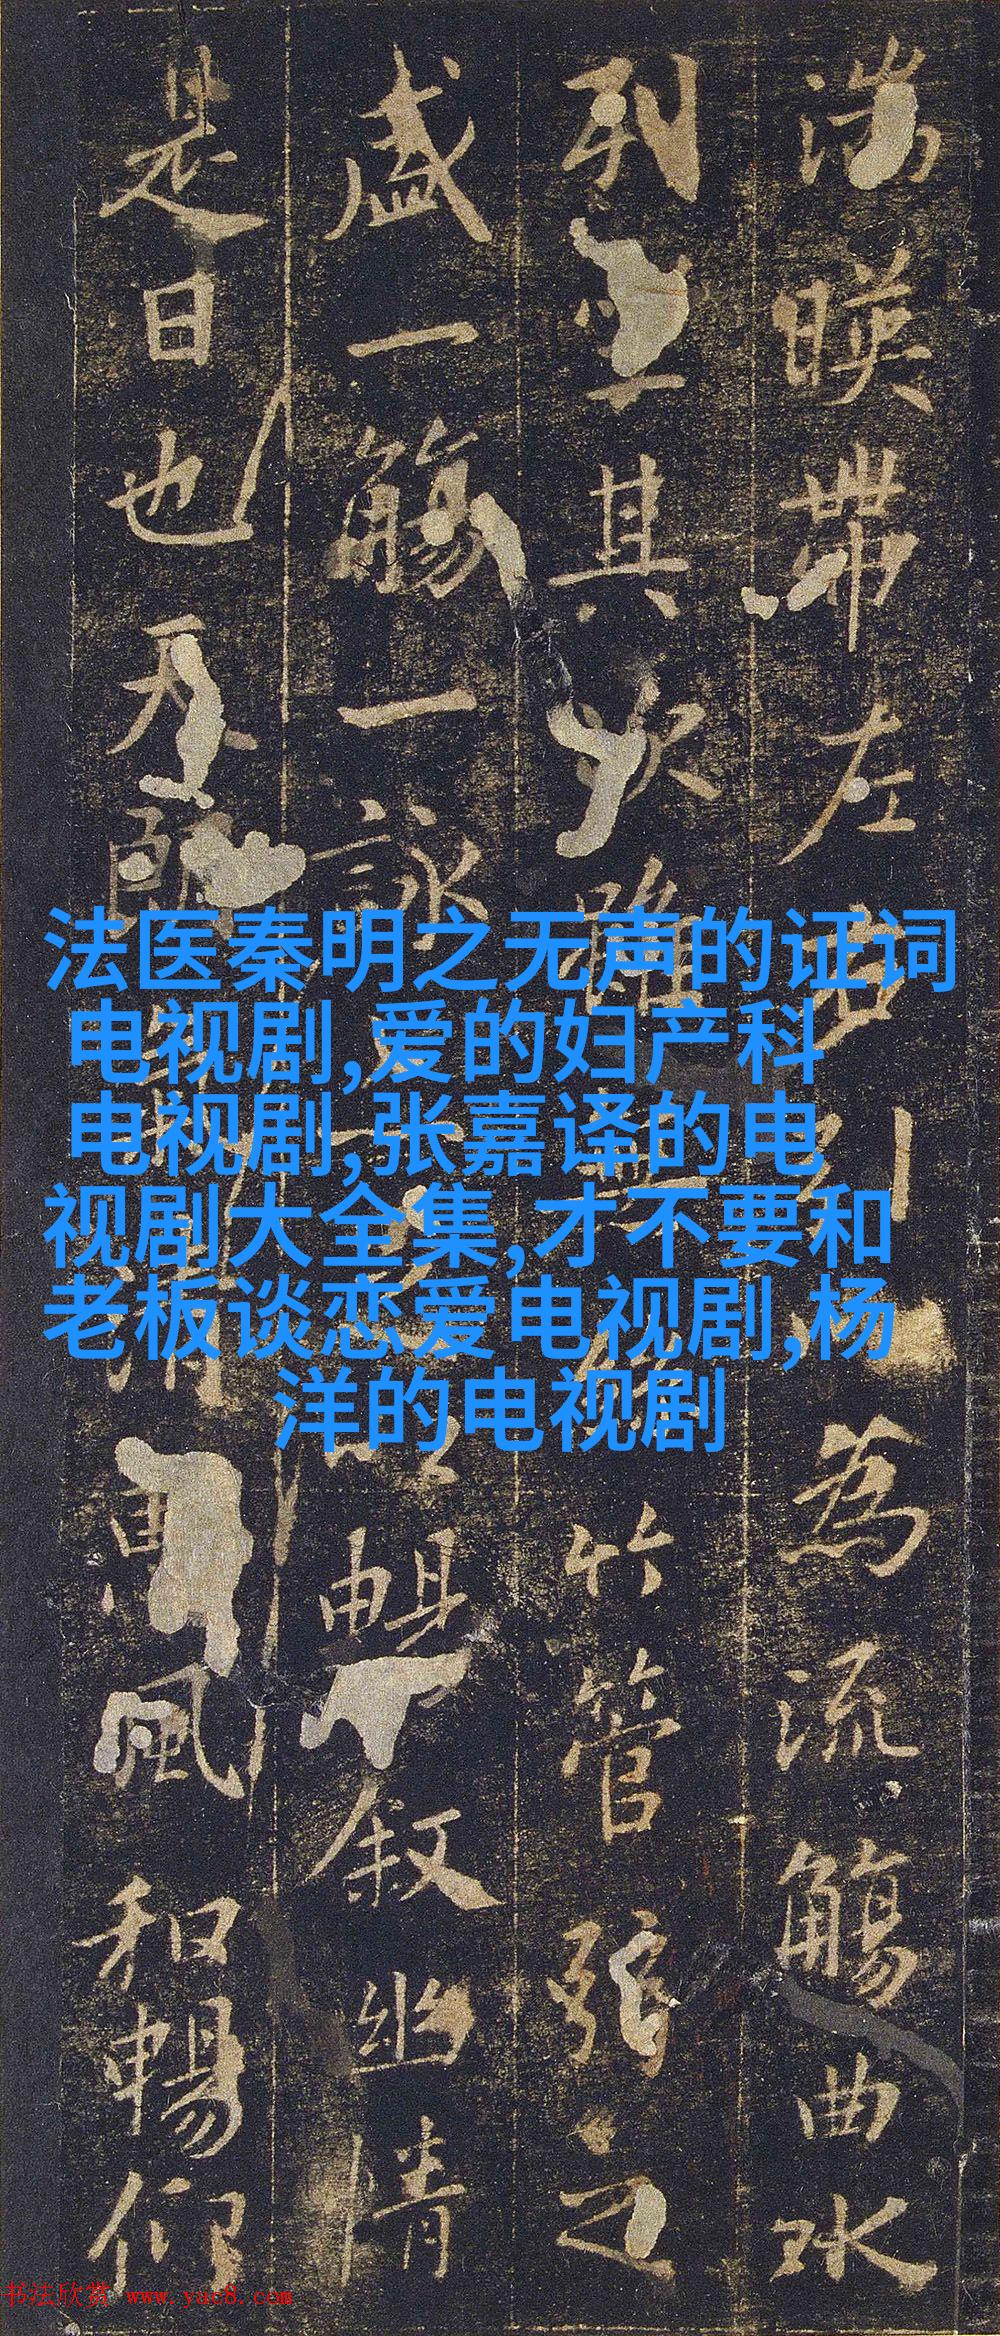 湍暎帶左右引為流觴曲水
列坐其次雖竹管弦之
盛一觴一詠暢叙幽情
是日也天朗清惠風和暢仰
法医秦明之无声的证词
电视剧,爱的妇产科
电视剧,张嘉译的电
视剧大全集,才不要和
老板谈恋爱电视剧,杨
洋的电视剧
书法欣赏 www.yac8.com